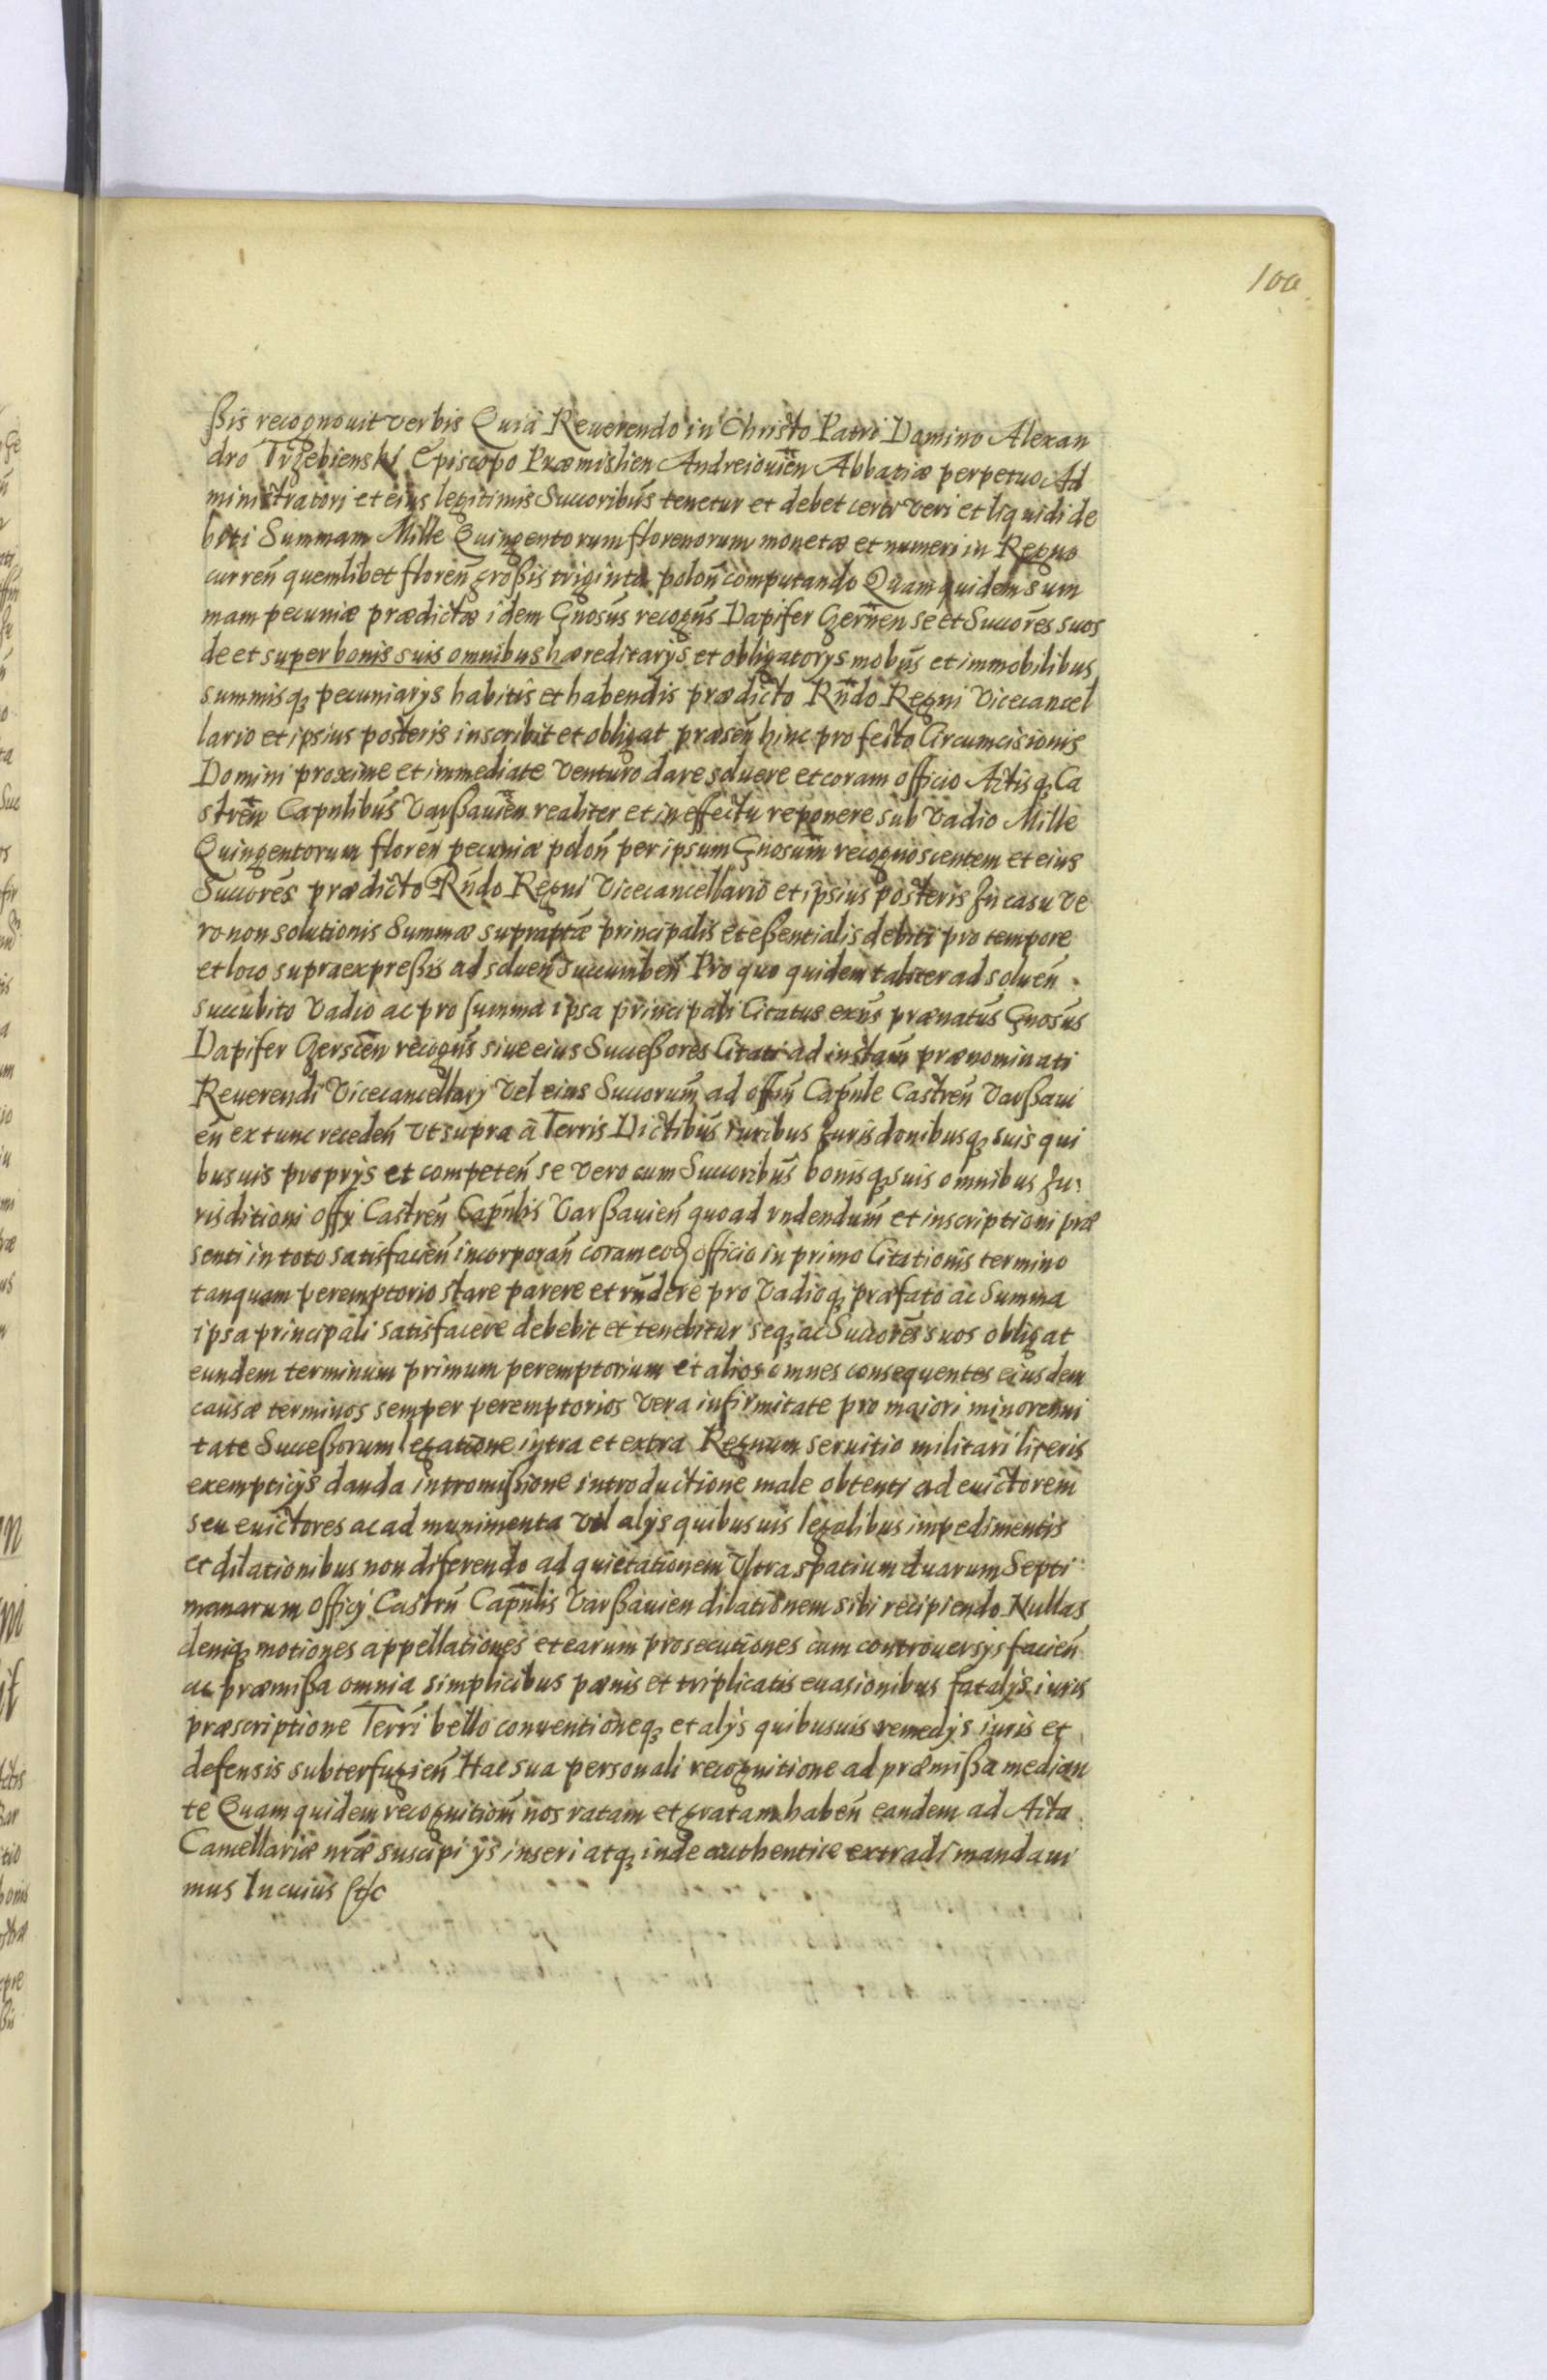 100
ßis recognouit verbis Quia Reuerendo in Christo Patri Domino Alexan
dro Trzebienski Episcopo Præmislien Andreiouien̄ Abbatiæ perpetuo Ad
ministratori et eius legitimis Succoribus̄ tenetur et debet certi veri et liquidi de
biti Summam Mille Quingentorum florenorum monetæ et numeri in Regno
curren̄ quemlibet floren̄ großis triginta polon̄ computando Quam quidem sum
mam pecuniæ prædictæ idem Gnosus̄ recogns̄ Dapifer Gernen̄ se et Succores̄ suos
de et super bonis suis omnibus hæreditarijs et obligatorijs mobus̄ et immobilibus
summisq3 pecuniarijs habitis et habendis prædicto Rn̄do Regni Vicecancel
lario et ipsius posteris inscribit et obligat præsen̄ hinc pro festo Circumcisionis
Domini proxime et immediate venturo dare soluere et coram officio Actisq3 Ca
stren̄ Capnlibus̄ Varßauien̄ realiter et in effectu reponere sub vadio Mille
Quingentorum floren̄ pecuniæ polon̄ per ipsum Gnosum̄ recognoscentem et eius
Succores̄ prædicto Rn̄do Regni Vicecancellario et ipsius posteris In casu ve
ro non solutionis Summæ supraptǣ principalis et eßentialis debiti pro tempore
et loco supraexpreßis ad soluen̄ succumben̄ Pro quo quidem taliter ad soluen̄
succubito vadio ac pro summa ipsa principali Citatus exns̄ prænatus̄ Gnosus̄
Dapifer Gerscen̄ recogns̄ siue eius Succeßores Citati ad instam̄ prænominati
Reuerendi Vicecancellarij vel eius Succorum̄ ad offm̄ Capn̄le Castren̄ Varßaui
en̄ ex tunc receden̄ vt supra à Terris Dictibus̄ iuribus Jurisdonibusq3 suis qui
busuis proprijs et competen̄ se vero cum Succoribus̄ bonisq3 suis omnibus Ju
risditioni offy Castren̄ Capn̄lis Varßauien̄ quoad rndendum̄ et inscriptioni præ
senti in toto satisfacien̄ incorporan̄ coram eoq3 officio in primo Citationis termino
tanquam peremptorio stare parere et rn̄dere pro vadioq3 præfato ac Summa
ipsa principali satisfacere debebit et tenebitur seq3 ac Succores̄ suos obligat
eundem terminum primum peremptorium et alios omnes consequentes eiusdem
causæ terminos semper peremptorios vera infirmitate pro maiori minorenni
tate Succeßorum legatione intra et extra Regnum seruitio militari literis
exempticijs danda intromißione introductione male obtenti ad euictorem
seu euictores ac ad munimenta vel alijs quibusuis legalibus impedimentis
et dilationibus non diferendo ad quietationem vltra spatium duarum Septi
manarum officij Castrn̄ Capn̄lis Varßauien dilationem sibi recipiendo Nullas
deniq3 motiones appellationes et earum prosecutiones cum controuersijs facien̄
ac præmißa omnia simplicibus pænis et triplicatis euasionibus fatalijs iuris
præscriptione Terri bello conuentioneq3 et alijs quibusuis remedijs iuris et
defensis subterfugien̄ Hac sua personali recognitione ad præmißa median
te Quam quidem recognitiom̄ nos ratam et gratam haben̄ eandem ad Acta
Cancellariæ nrǣ suscipi ijs inseri atq3 inde authentice extradi mandaui
mus In cuius etc